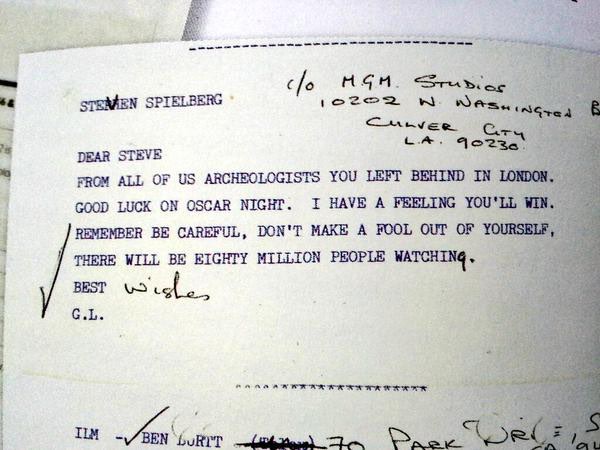 STEVEN SPIELBERG
c/o M.G.M. STUDIOS
10202 N. WASHINGTON B
CULVER CITY
L.A. 90230.
DEAR STEVE
FROM ALL OF US ARCHEOLOGISTS YOU LEFT BEHIND IN LONDON.
GOOD LUCK ON OSCAR NIGHT. I HAVE A FEELING YOU'LL WIN.
REMEMBER BE CAREFUL, DON'T MAKE A FOOL OUT OF YOURSELF,
THERE WILL BE EIGHTY MILLION PEOPLE WATCHINg.
BEST wishes
G.L.
ILM - BEN BURTT 70 PARK